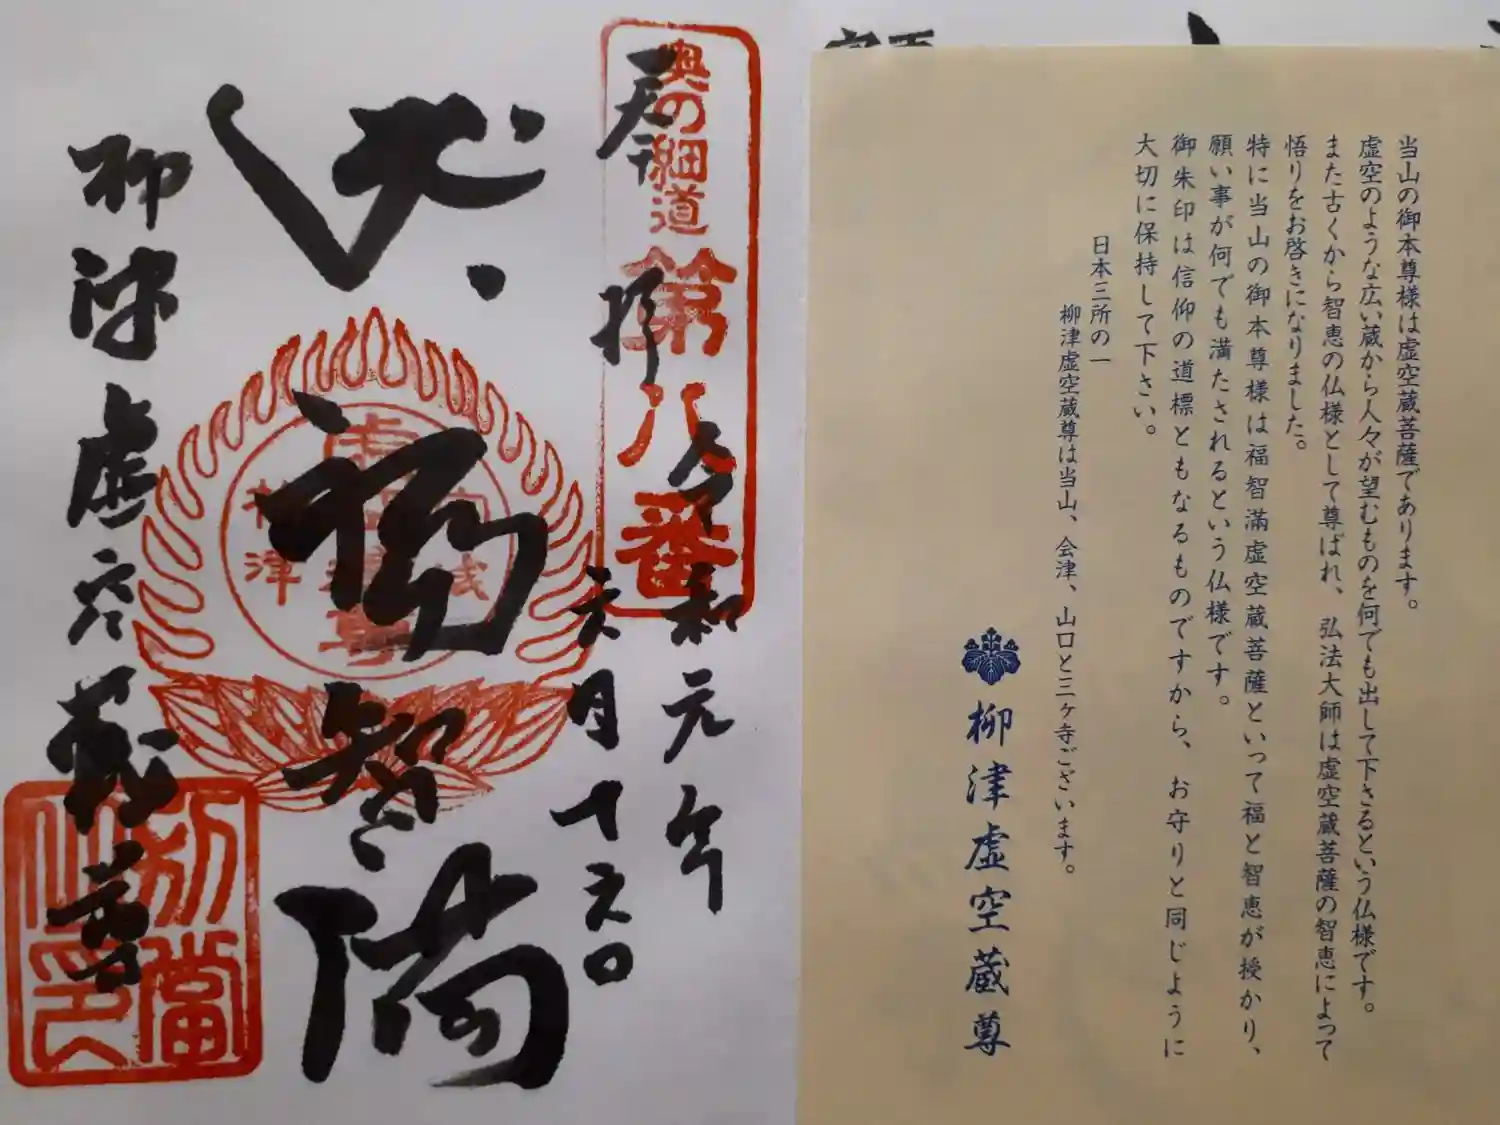 奥の細道
第八番
奉拝
令和元年
六月十六日
福智満
柳津虚空蔵尊
柳津
別當之印
当山の御本尊様は虚空蔵菩薩であります。
虚空のような広い蔵から人々が望むものを何でも出して下さるという仏様です。
また古くから智恵の仏様として尊ばれ、弘法大師は虚空蔵菩薩の智恵によって
悟りをお啓きになりました。
特に当山の御本尊様は福智滿虚空蔵菩薩といって福と智恵が授かり、
願い事が何でも満たされるという仏様です。
御朱印は信仰の道標ともなるものですから、お守りと同じように
大切に保持して下さい。
日本三所の一
柳津虚空蔵尊は当山、会津、山口と三ヶ寺ございます。
柳津虚空蔵尊